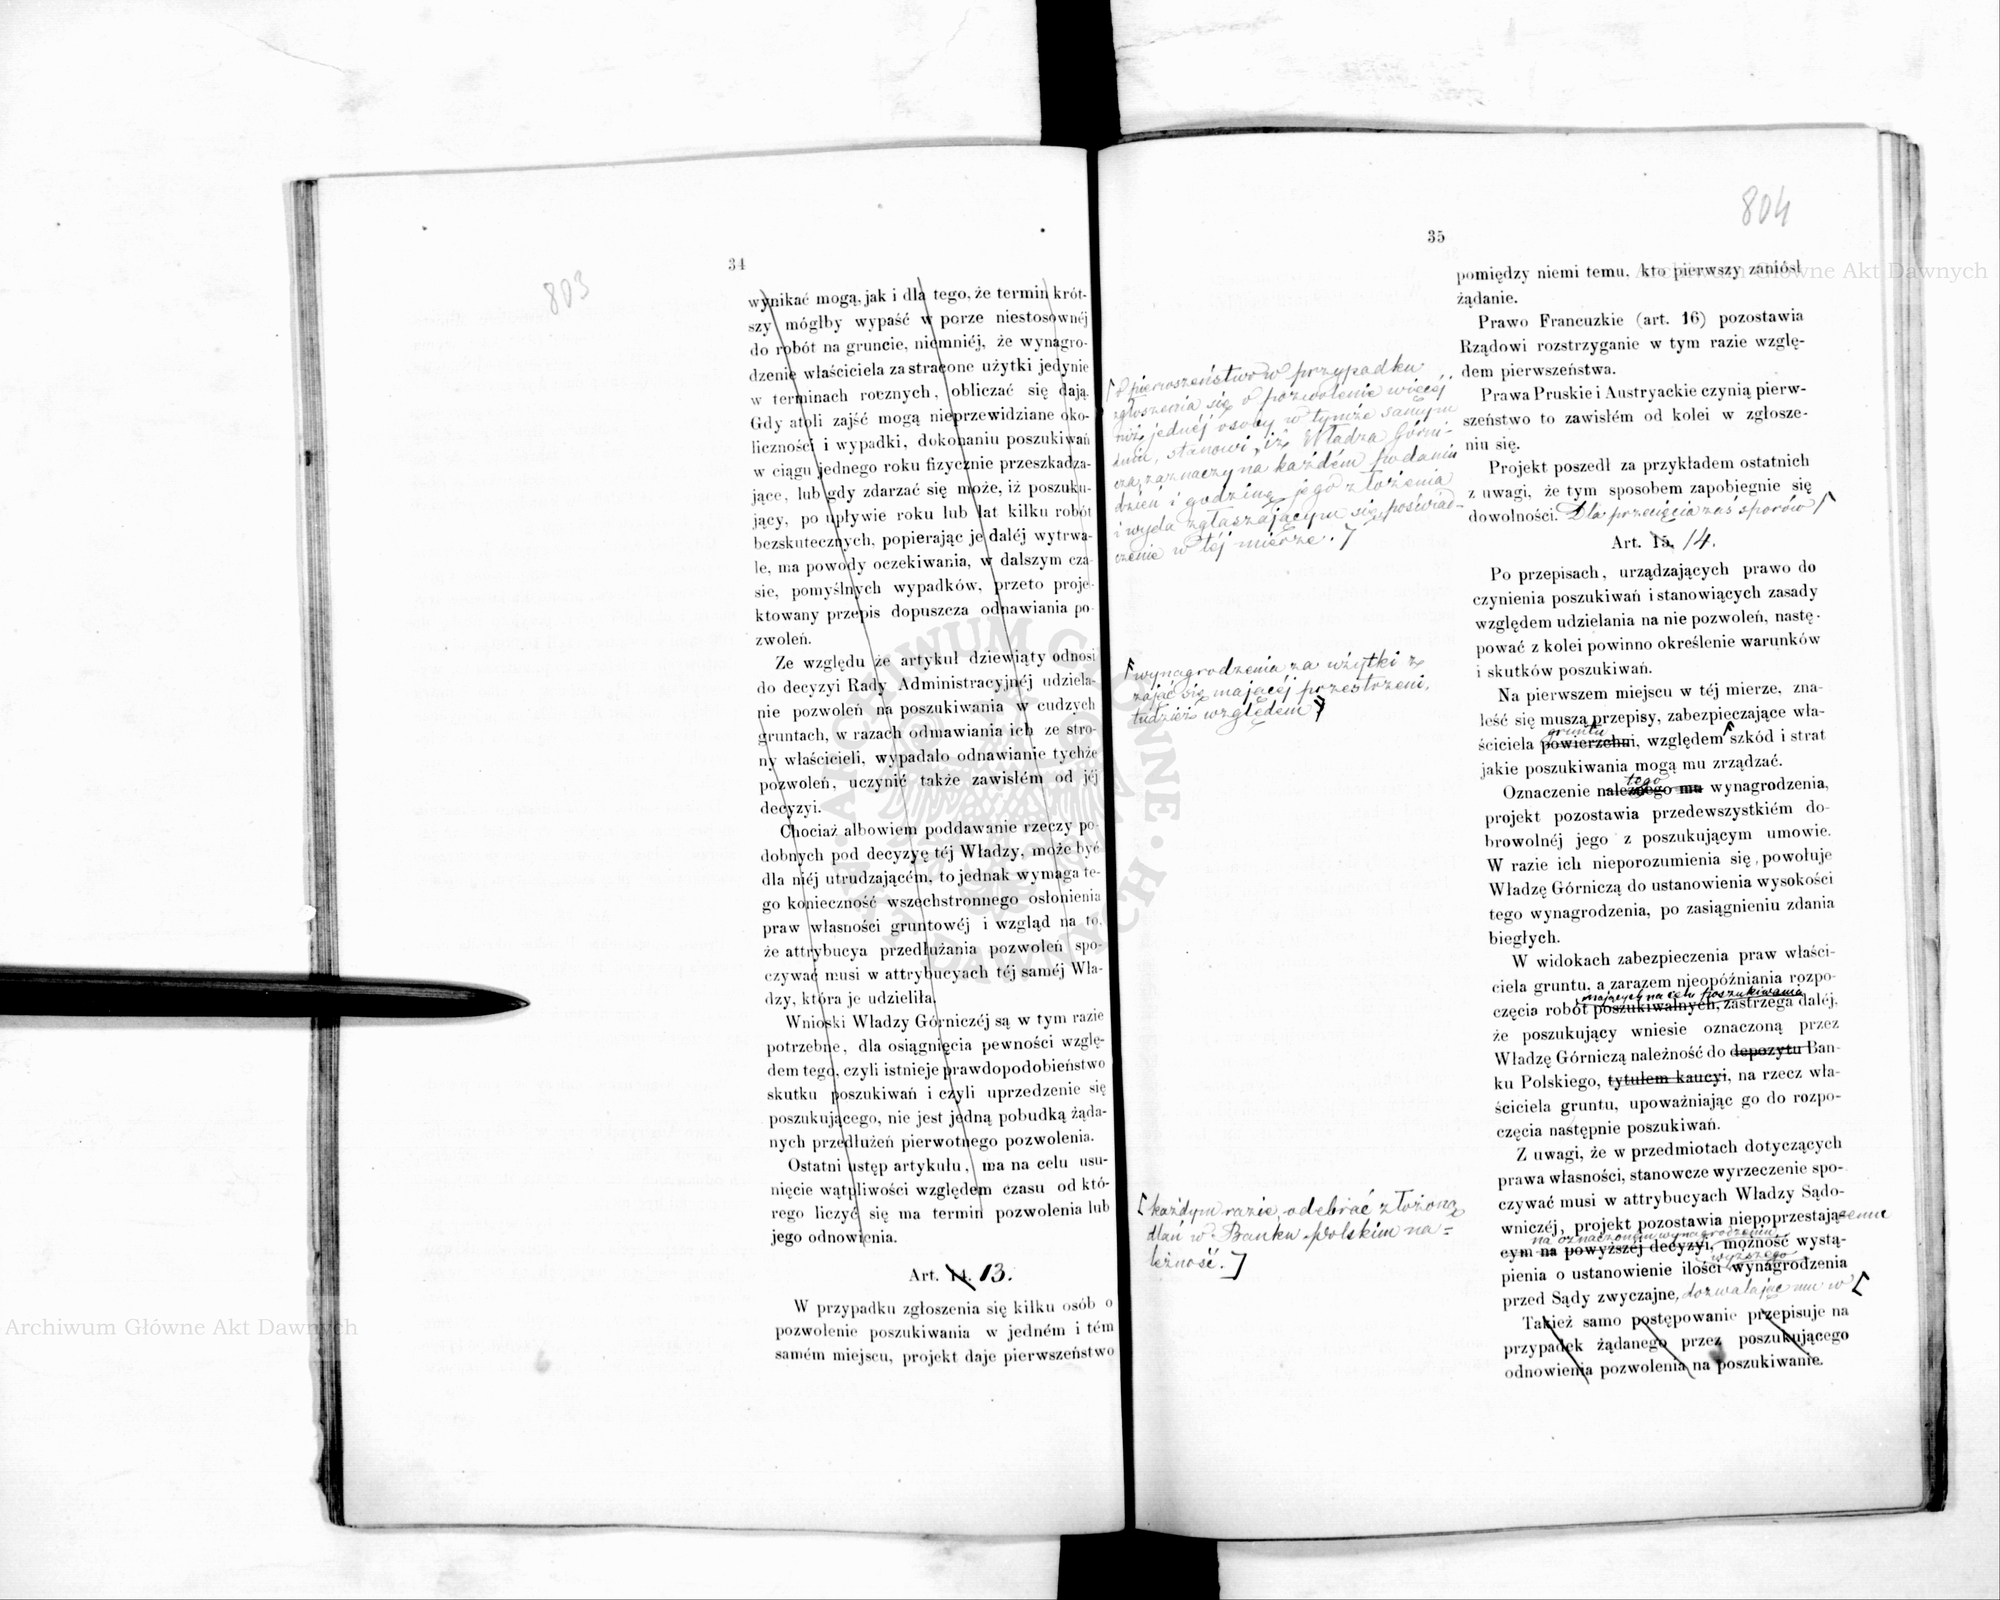 803
34
wynikać mogą, jak i dla tego, że termin krót-
szy mógłby wypaść w porze niestosownéj
do robót na gruncie, niemniéj, że wynagro-
dzenie właściciela za stracone użytki jedynie
w terminach rocznych, obliczać się dają.
Gdy atoli zajść mogą nieprzewidziane oko-
liczności i wypadki, dokonaniu poszukiwań
w ciągu jednego roku fizycznie przeszkadza-
jące, lub gdy zdarzać się może, iż poszuku-
jący, po upływie roku lub lat kilku robót
bezskutecznych, popierając je daléj wytrwa-
le, ma powody oczekiwania, w dalszym cza-
sie, pomyślnych wypadków, przeto proje-
ktowany przepis dopuszcza odnawiania po-
zwoleń.
Ze względu że artykuł dziewiąty odnosi
do decyzyi Rady Administracyjnéj udziela-
nie pozwoleń na poszukiwania w cudzych
gruntach, w razach odmawiania ich ze stro-
ny właścicieli, wypadało odnawianie tychże
pozwoleń, uczynić także zawisłém od jéj
decyzyi.
Chociaż albowiem poddawanie rzeczy po-
dobnych pod decyzyę téj Władzy, może być
dla niéj utrudzającém, to jednak wymaga te-
go konieczność wszechstronnego osłonienia
praw własności gruntowéj i wzgląd na to,
że attrybucya przedłużania pozwoleń spo-
czywać musi w attrybucyach téj saméj Wła-
dzy, która je udzieliła.
Wnioski Władzy Górniczéj są w tym razie
potrzebne, dla osiągnięcia pewności wzglę-
dem tego, czyli istnieje prawdopodobieństwo
skutku poszukiwań i czyli uprzedzenie się
poszukującego, nie jest jedną pobudką żąda-
nych przedłużeń pierwotnego pozwolenia.
Ostatni ustęp artykułu, ma na celu usu-
nięcie wątpliwości względem czasu od któ-
rego liczyć się ma termin pozwolenia lub
jego odnowienia.
Art. 14. 13.
W przypadku zgłoszenia się kilku osób o
pozwolenie poszukiwania w jedném i tém
samém miejscu, projekt daje pierwszeństwo
804
35
pomiędzy niemi temu, kto pierwszy zaniósł
żądanie.
Prawo Francuzkie (art. 16) pozostawia
Rządowi rozstrzyganie w tym razie wzglę-
dem pierwszeństwa.
Prawa Pruskie i Austryackie czynią pierw-
szeństwo to zawisłém od kolei w zgłosze-
niu się.
Projekt poszedł za przykładem ostatnich
z uwagi, że tym sposobem zapobiegnie się
dowolności. Dla przecięcia zaś sporów
[o pierwszeństwo w przypadku
zgłoszenia się o pozwolenie więcéj
niż jednéj osoby w tymże samym
dniu, stanowi, iż Władza Górni-
cza, zaznaczy na każdém podaniu
dzień i godzinę jego złożenia
i wyda zgłaszającym się poświad-
czenie w téj mierze.]
Art. 15. 14.
Po przepisach, urządzających prawo do
czynienia poszukiwań i stanowiących zasady
względem udzielania na nie pozwoleń, nastę-
pować z kolei powinno określenie warunków
i skutków poszukiwań.
Na pierwszem miejscu w téj mierze, zna-
leść się muszą przepisy, zabezpieczające wła-
gruntu
ściciela powierzchni, względem szkód i strat
jakie poszukiwania mogą mu zrządzać.
[wynagrodzenia za użytki z
zająć się mającéj przestrzeni,
tudzież względem]
tego
Oznaczenie należnego mu wynagrodzenia,
projekt pozostawia przedewszystkiém do-
browolnéj jego z poszukującym umowie.
W razie ich nieporozumienia się, powołuje
Władzę Górniczą do ustanowienia wysokości
tego wynagrodzenia, po zasiągnieniu zdania
biegłych.
W widokach zabezpieczenia praw właści-
ciela gruntu, a zarazem nieopóźniania rozpo-
mających na celu poszukiwania
częcia robót poszukiwalnych, zastrzega daléj,
że poszukujący wniesie oznaczoną przez
Władzę Górniczą należność do depozytu Ban-
ku Polskiego, tytułem kaucyi, na rzecz wła-
ściciela gruntu, upoważniając go do rozpo-
częcia następnie poszukiwań.
Z uwagi, że w przedmiotach dotyczących
prawa własności, stanowcze wyrzeczenie spo-
czywać musi w attrybucyach Władzy Sądo-
wniczéj, projekt pozostawia niepoprzestają-cemu
na oznaczoném wynagrodzeniu
cym na powyższéj decyzyi, możność wystą-
wyższego
pienia o ustanowienie ilości wynagrodzenia
przed Sądy zwyczajne, dozwalając mu w
[każdym razie, odebrać złożoną
dlań w Banku polskim na=
leżność.]
Takież samo postępowanie przepisuje na
przypadek żądanego przez poszukującego
odnowienia pozwolenia na poszukiwanie.
Archiwum Główne Akt Dawnych
Archiwum Główne Akt Dawnych
ARCHIWUM GŁÓWNE AKT DAWNYCH